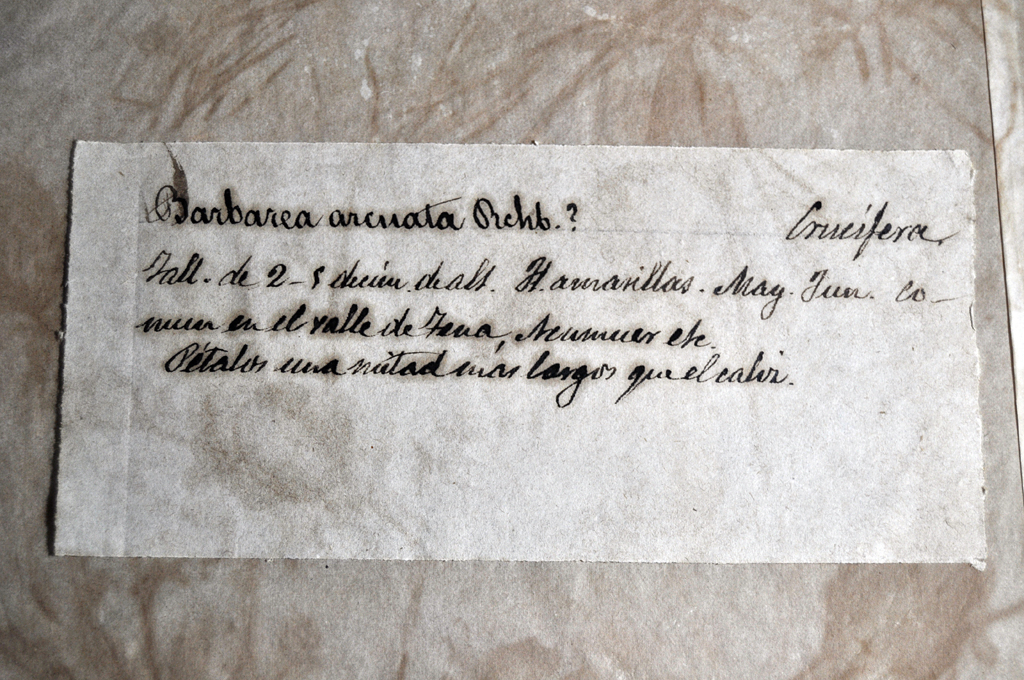 Barbarea arcuata Rchb.? Crucífera
Tall. de 2-5 decím. de alt. Fl. amarillas. May. Jun. Co-
mun en el valle de Jena, etc.
Pétalos una mitad más largos que el caliz.